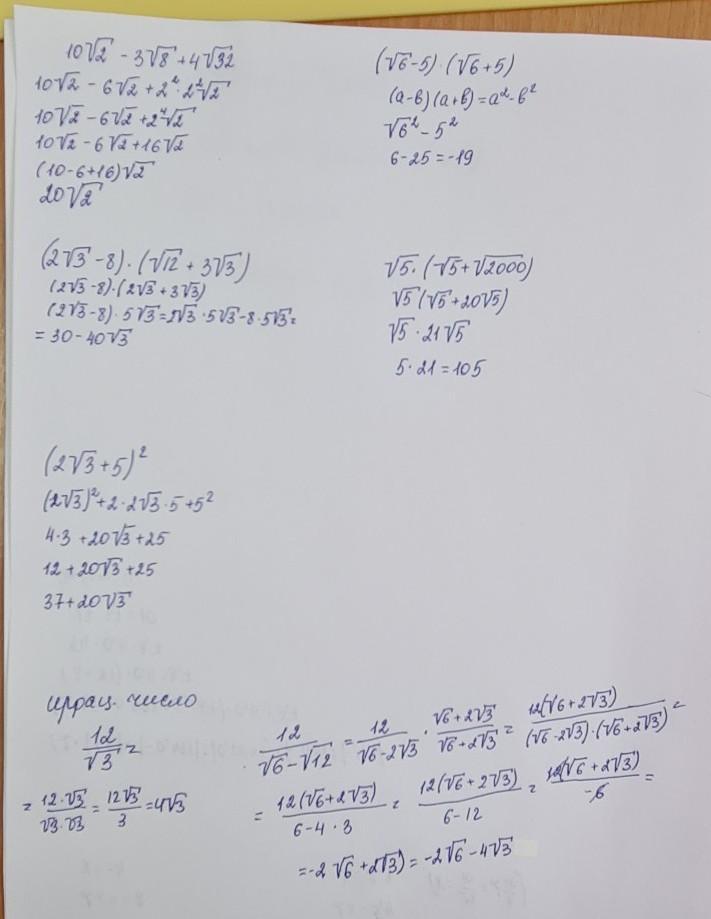 10√2 - 3√8 + 4√32
10√2 - 6√2 + 2²·2²√2
10√2 - 6√2 + 2⁴√2
10√2 - 6√2 + 16√2
(10-6+16)√2
20√2
(√6-5)·(√6+5)
(a-b)(a+b)=a²-b²
√6² - 5²
6-25=-19
(2√3-8)·(√12+3√3)
(2√3-8)·(2√3+3√3)
(2√3-8)·5√3=2√3·5√3-8·5√3=
=30-40√3
√5·(√5+√2000)
√5(√5+20√5)
√5·21√5
5·21=105
(2√3+5)²
(2√3)²+2·2√3·5+5²
4·3+20√3+25
12+20√3+25
37+20√3
иррац. число
12/√3=
= 12·√3/√3·√3 = 12√3/3 = 4√3
12/√6-√12 = 12/√6-2√3 · √6+2√3/√6+2√3 = 12(√6+2√3)/(√6-2√3)·(√6+2√3) =
= 12(√6+2√3)/6-4·3 = 12(√6+2√3)/6-12 = 12(√6+2√3)/-6 =
=-2√6+2√3)=-2√6-4√3